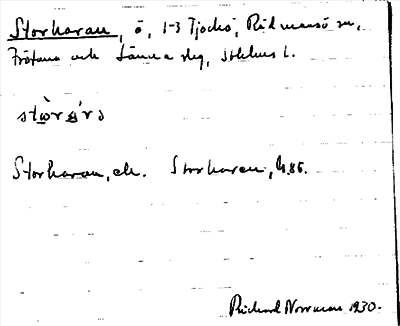 Storharan, ö, 1-3 Tjockö, Rådmansö sn,
Frötuna och Länna slg, Sthlms l.
stὼrą́rə
Storharan, ek. Storharen, 485.
Richard Norrman 1930.